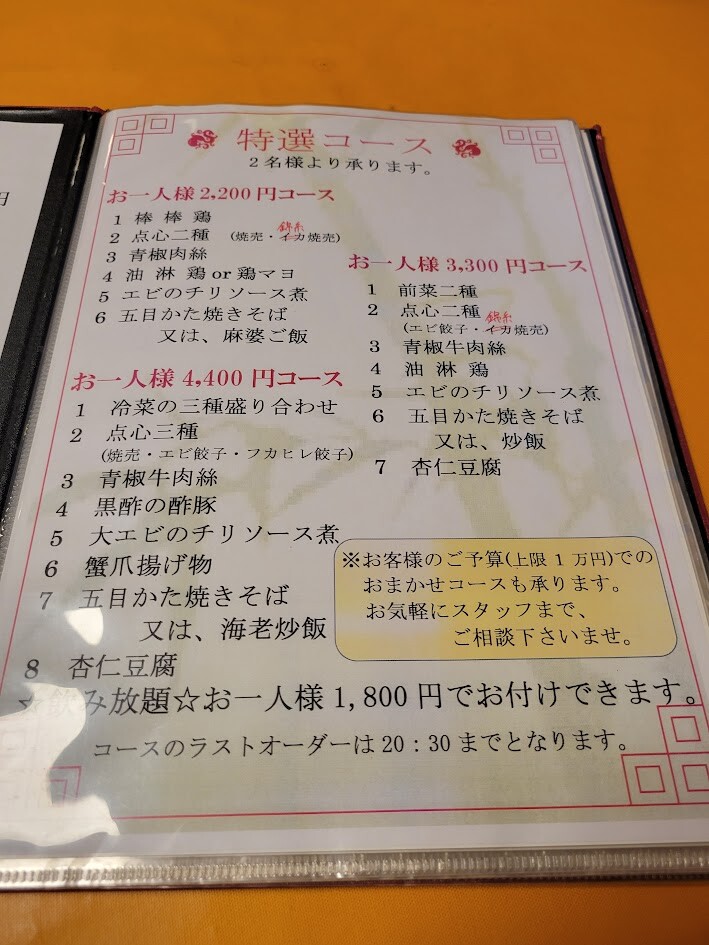 特選コース
2名様より承ります。
お一人様 2,200 円コース
1 棒 棒 鶏
2 点心二種 (焼売・錦糸焼売)
3 青椒肉絲
4 油 淋 鶏 or 鶏マヨ
5 エビのチリソース煮
6 五目かた焼きそば
又は、麻婆ご飯
お一人様 3,300 円コース
1 前菜二種
2 点心二種
(エビ餃子・錦糸焼売)
3 青椒牛肉絲
4 油 淋 鶏
5 エビのチリソース煮
6 五目かた焼きそば
又は、炒飯
7 杏仁豆腐
お一人様 4,400 円コース
1 冷菜の三種盛り合わせ
2 点心三種
(焼売・エビ餃子・フカヒレ餃子)
3 青椒牛肉絲
4 黒酢の酢豚
5 大エビのチリソース煮
6 蟹爪揚げ物
7 五目かた焼きそば
又は、海老炒飯
8 杏仁豆腐
※お客様のご予算(上限 1 万円)での
おまかせコースも承ります。
お気軽にスタッフまで、
ご相談下さいませ。
☆飲み放題☆お一人様 1,800 円でお付けできます。
コースのラストオーダーは 20:30 までとなります。
日